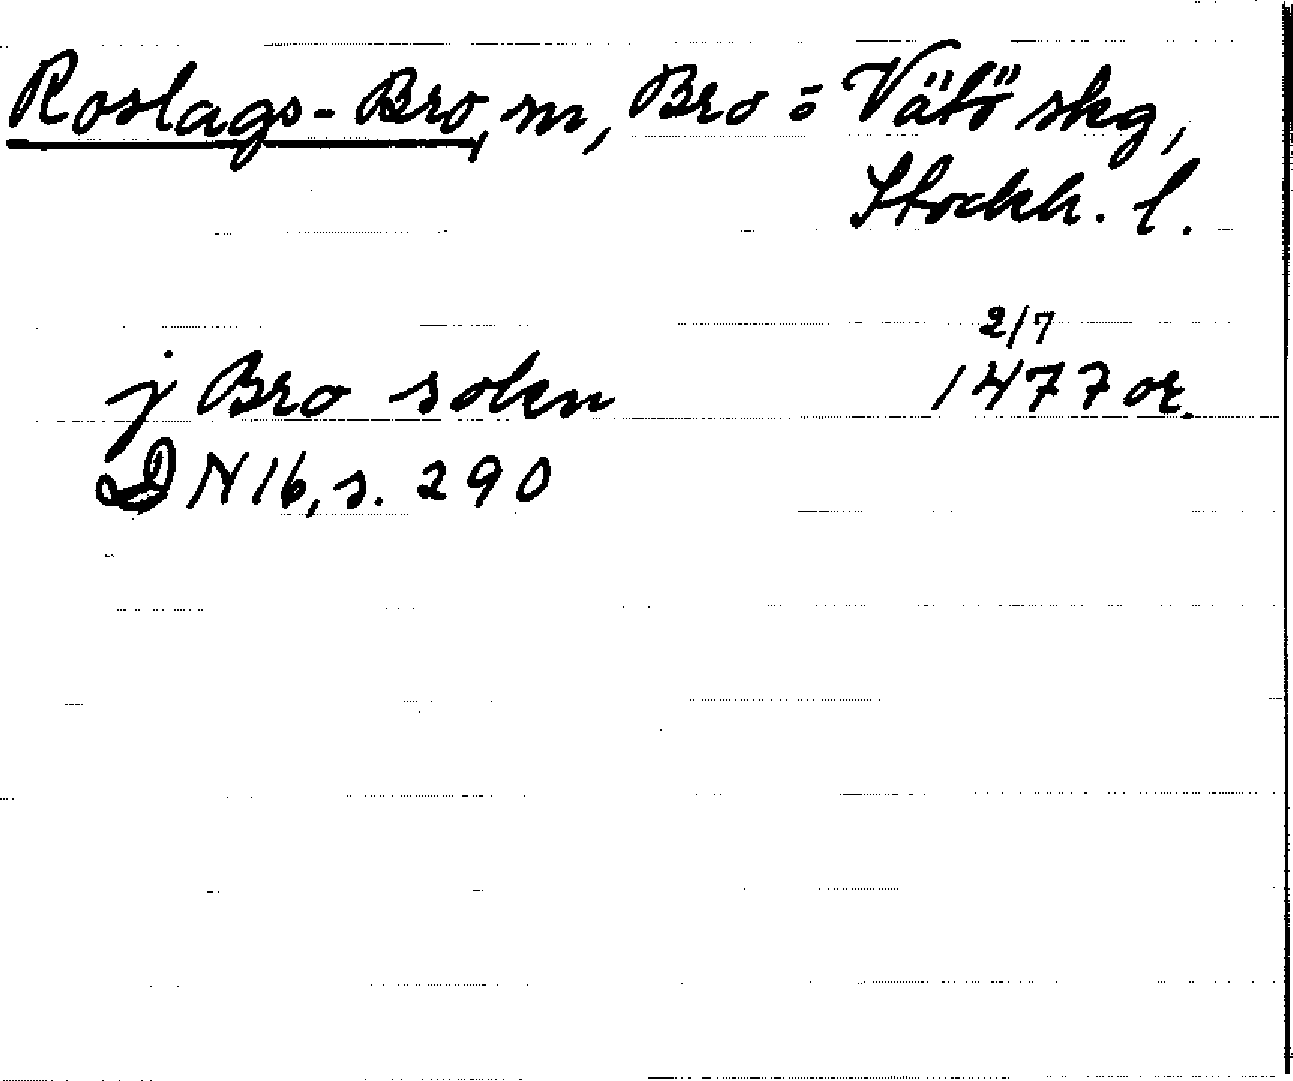 Roslags-Bro, sn, Bro o Vätö skg,
Stockh. l.
2/7
j Bro sokn 1477 or.
DN 16, s. 290